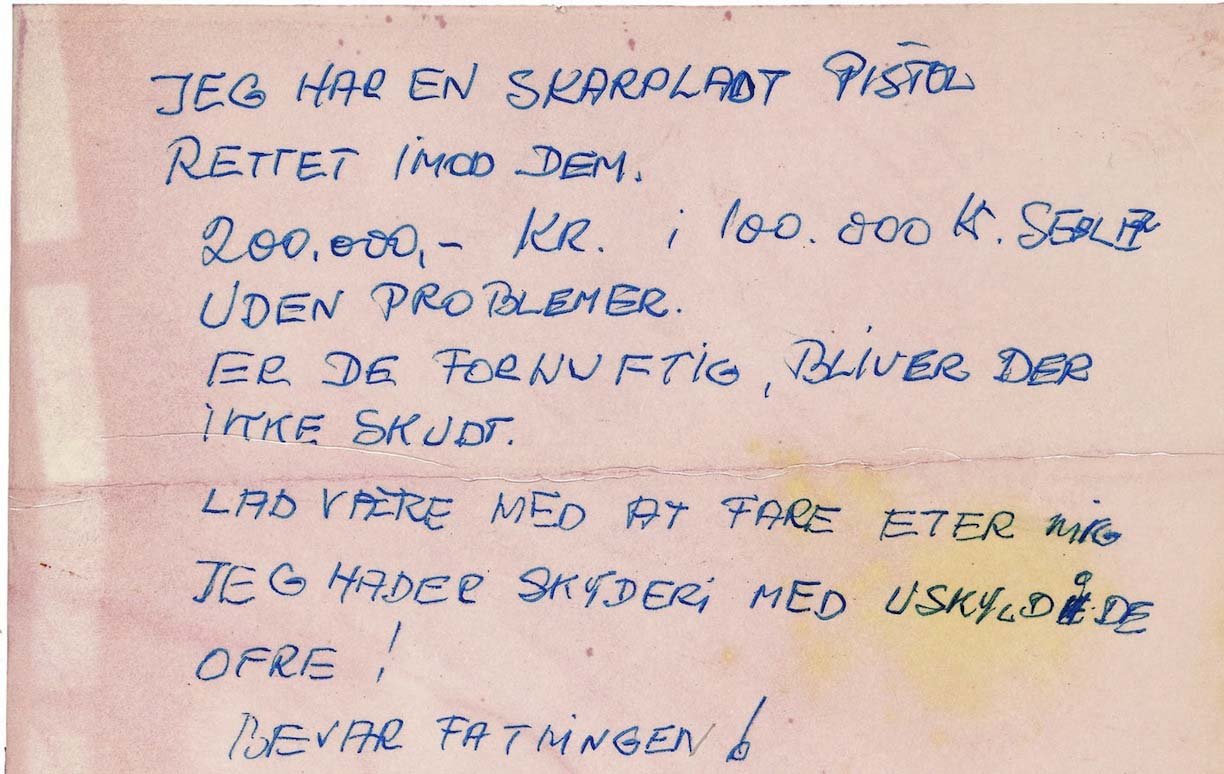 JEG HAR EN SKARPLADT PISTOL
RETTET IMOD DEM.
200.000,- KR. i 100.000 Kr. SEDLER
UDEN PROBLEMER.
ER DE FORNUFTIG, BLIVER DER
IKKE SKUDT.
LAD VÆRE MED AT FARE ETER MIG
JEG HADER SKYDERi MED USKYLDIDE
OFRE !
BEVAR FATNINGEN !